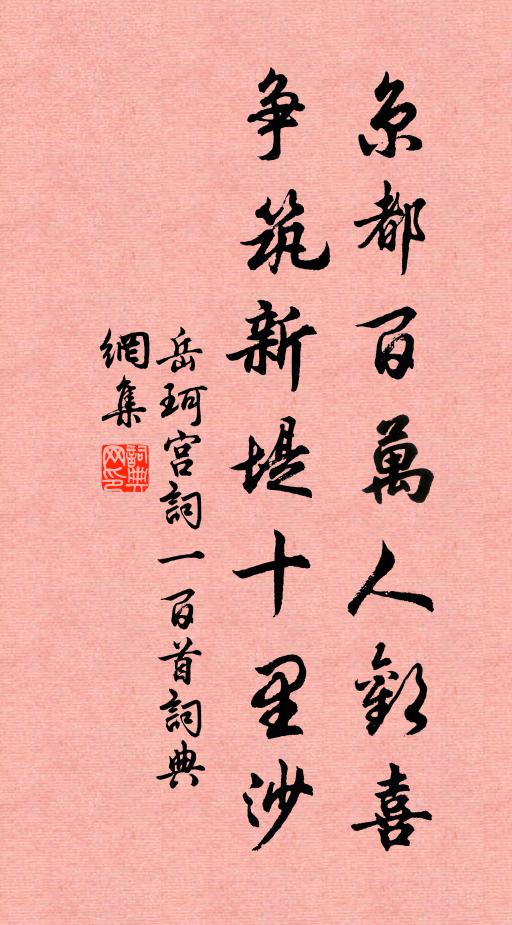 京都百萬人歡喜
争筑新堤十里沙
岳珂宫詞一百首詞典
網集
詞典
网印